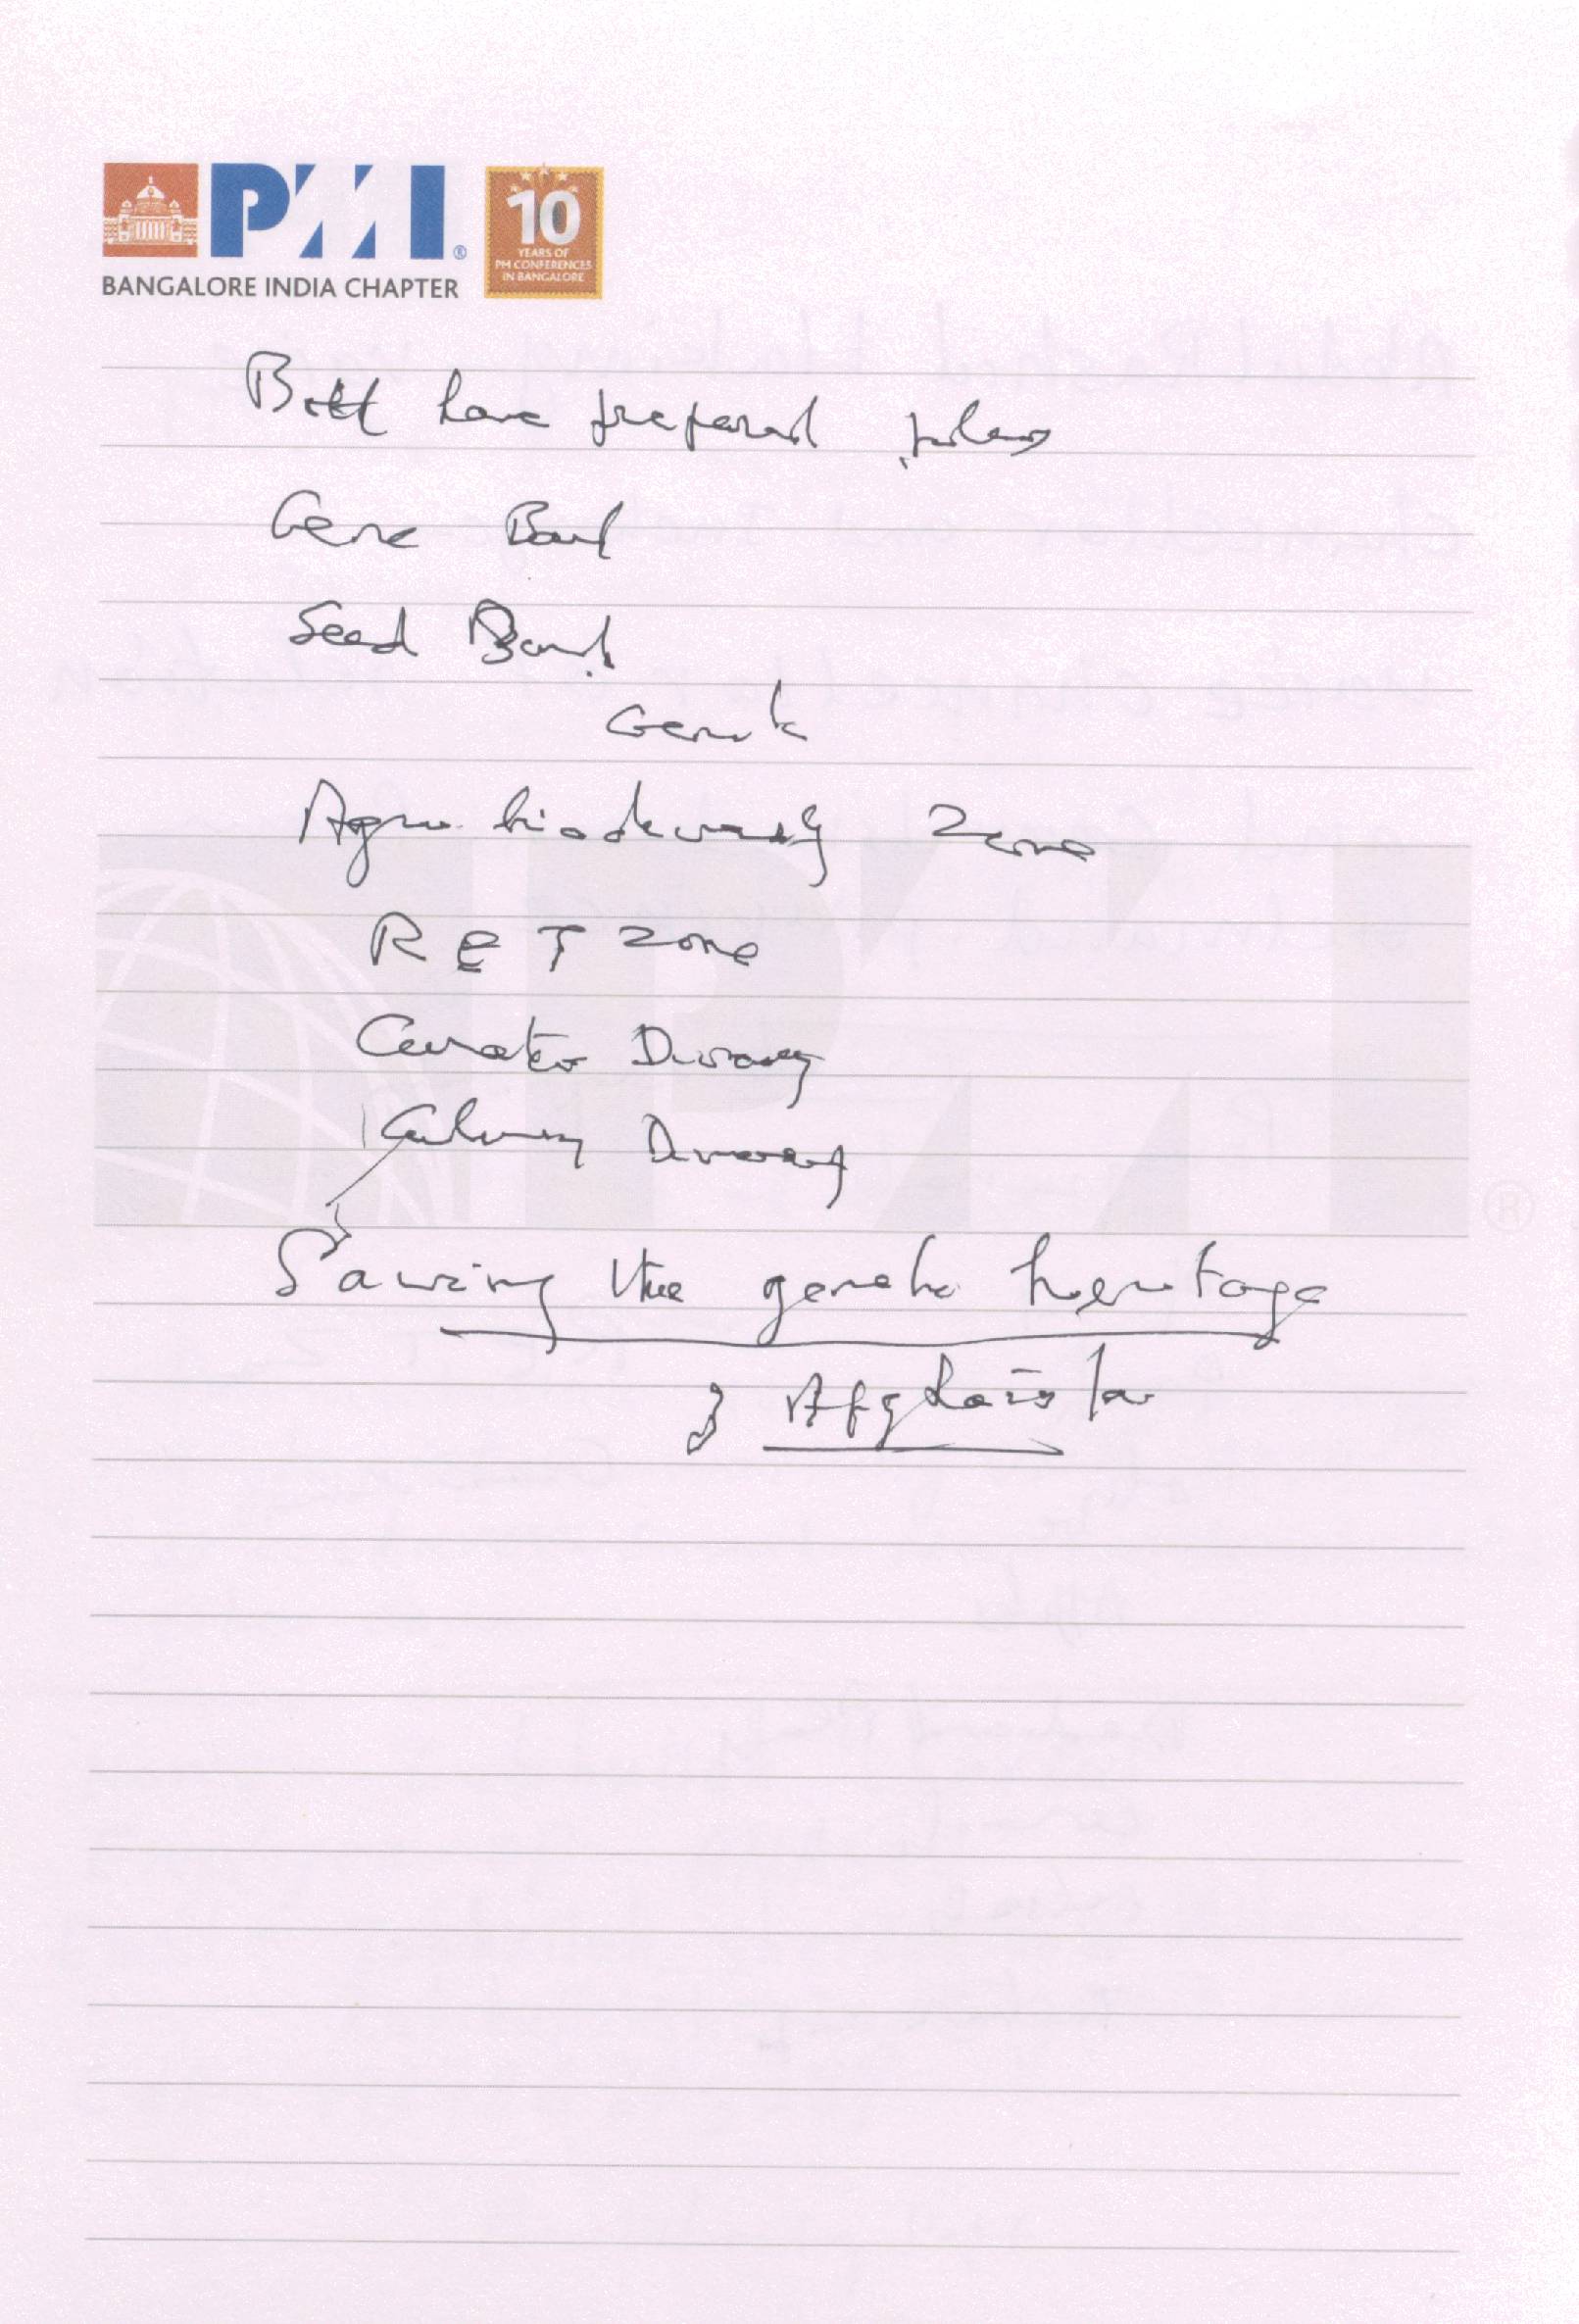 PMI®
BANGALORE INDIA CHAPTER
10
YEARS OF
PM CONFERENCES
IN BANGALORE
Both have prepared
Gene Bank
Seed Bank
Genetic
Agro biodiversity Zone
RET Zone
Diversity
Culinary Diversity
Saving the genetic heritage
of Afghanistan